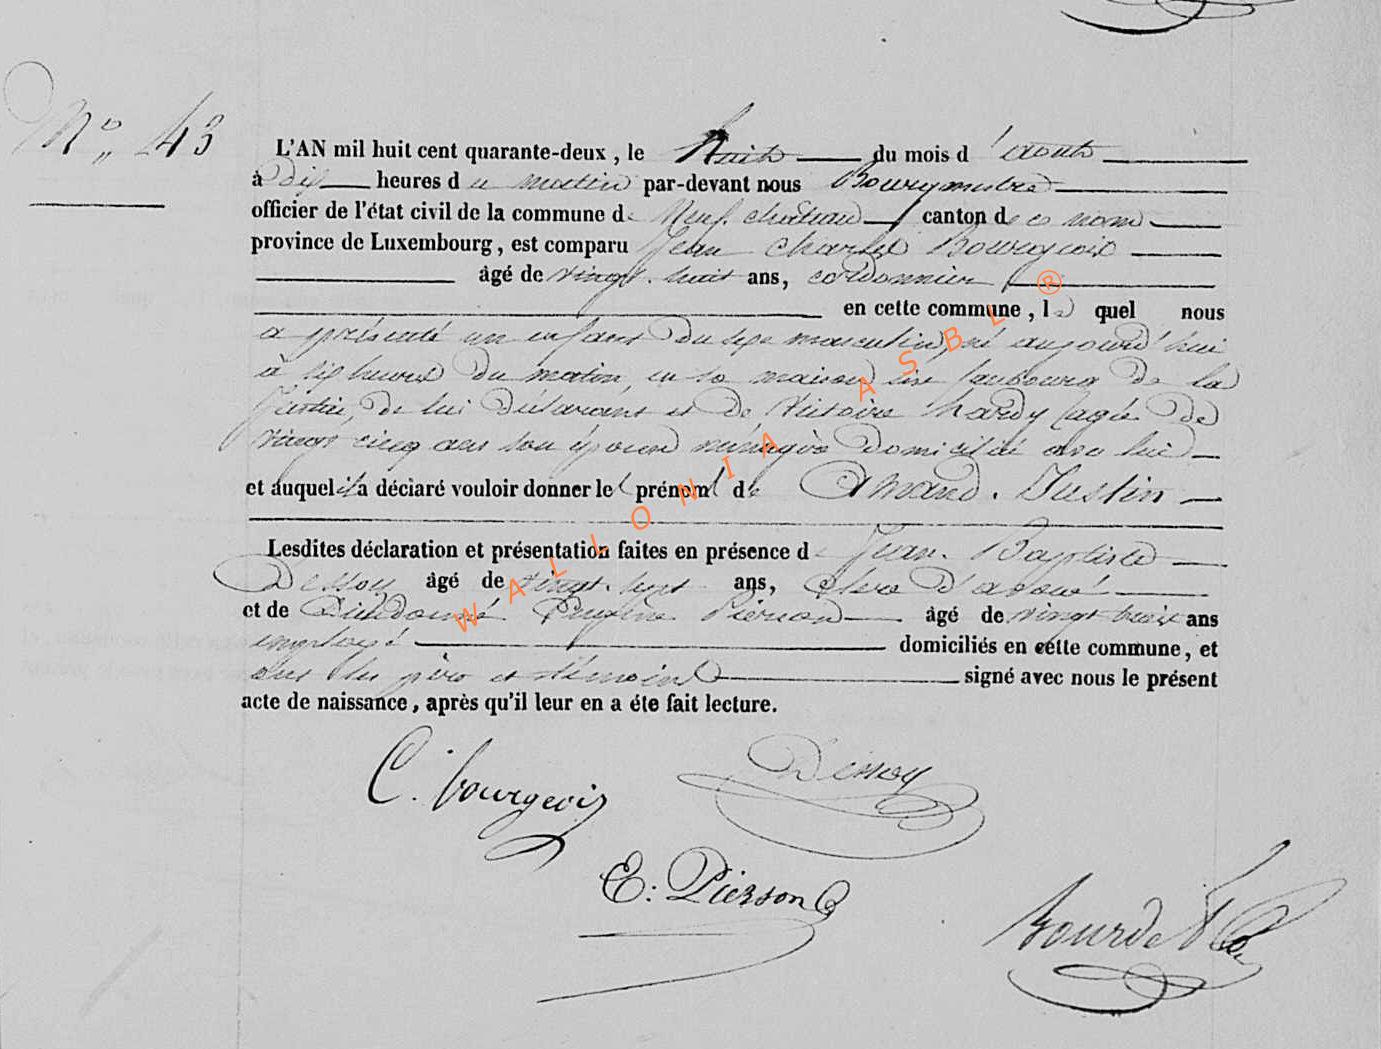 N° 43
L'AN mil huit cent quarante-deux, le huit du mois d'août
à dix heures du matin par-devant nous Bourgmestre
officier de l'état civil de la commune de Neufchâteau canton de ce nom
province de Luxembourg, est comparu Jean Charles Bourgeois
âgé de vingt-huit ans, cordonnier
en cette commune, lequel nous
a présenté un enfant du sexe masculin, né aujourd'hui
à six heures du matin, en sa maison sise faubourg de la
de lui déclarant et de Victoire hardy agée de
vingt cinq ans son épouse ménagère domiciliée avec lui
et auquel il a déclaré vouloir donner le prénom de Amand. Justin
Lesdites déclaration et présentation faites en présence de Jean-Baptiste
Dessoy âgé de vingt-sept ans, clerc d'avoué
et de Dieudonné Eugène Pierson âgé de vingt trois ans
employé domiciliés en cette commune, et
ont les père et témoins signé avec nous le présent
acte de naissance, après qu'il leur en a été fait lecture.
C. bourgeois
Dessoy
E. Pierson
WALLONIA ASBL ®